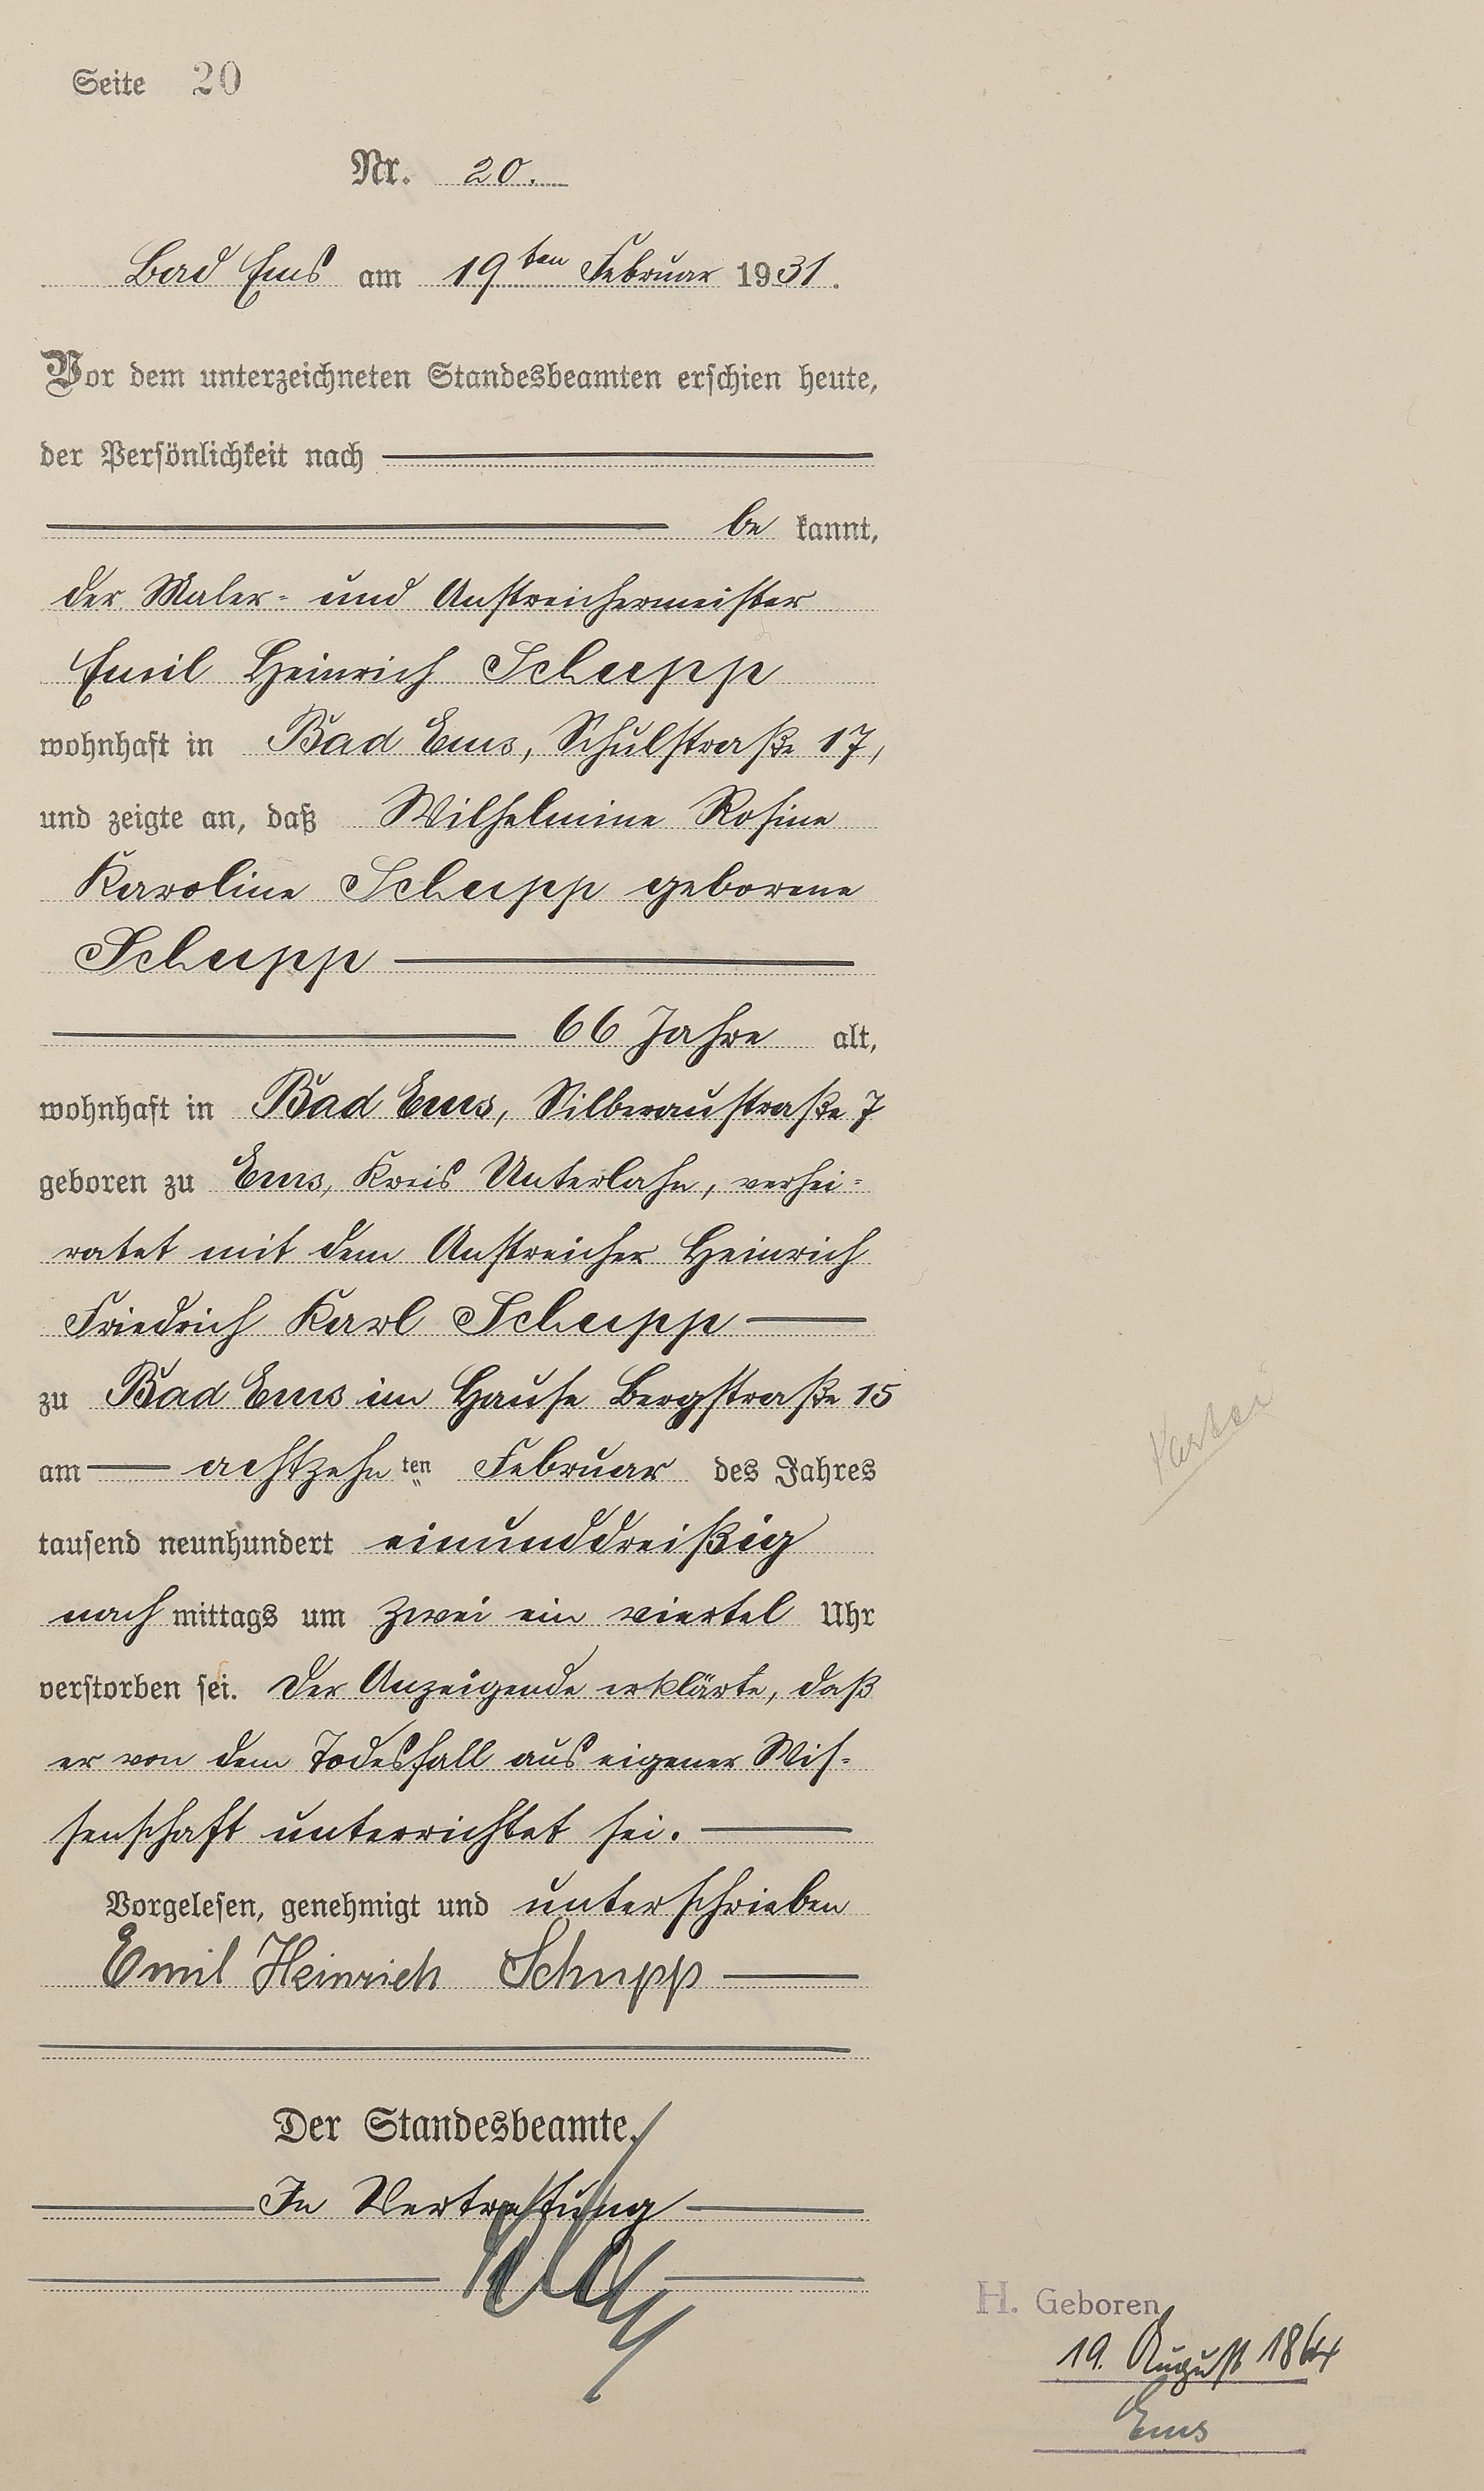 Seite 20
Nr. 20.
Bad Ems am 19ten Februar 1931.
Vor dem unterzeichneten Standesbeamten erschien heute,
der Persönlichkeit nach
be kannt,
der Maler- und Anstreichermeister
Emil Heinrich Schupp
wohnhaft in Bad Ems, Schulstraße 17,
und zeigte an, daß Wilhelmine Rosine
Karoline Schupp geborene
Schupp
66 Jahre alt,
wohnhaft in Bad Ems, Silberaustraße 7
geboren zu Ems, Kreis Unterlahn, verhei-
ratet mit dem Anstreicher Heinrich
Friedrich Karl Schupp
zu Bad Ems im Hause Bergstraße 15
am achtzehn ten Februar des Jahres
tausend neunhundert einunddreißig
nach mittags um zwei ein viertel Uhr
verstorben sei. Der Anzeigende erklärte, daß
er von dem Todesfall aus eigener Wis-
senschaft unterrichtet sei.
Vorgelesen, genehmigt und unterschrieben
Emil Heinrich Schupp
Der Standesbeamte.
In Vertretung
H. Geboren
19. August 1864
Ems